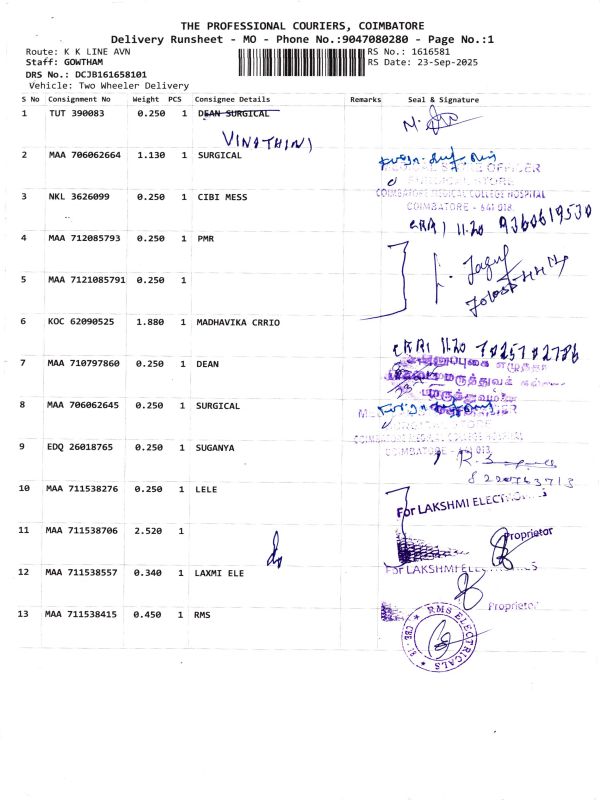 THE PROFESSIONAL COURIERS, COIMBATORE
Delivery Runsheet - MO - Phone No.:9047080280 - Page No.:1
Route: K K LINE AVN RS No.: 1616581
Staff: GOWTHAM RS Date: 23-Sep-2025
DRS No.: DCJB161658101
Vehicle: Two Wheeler Delivery
S No Consignment No Weight PCS Consignee Details Remarks Seal & Signature
1 TUT 390083 0.250 1 DEAN SURGICAL
VINOTHINI
2 MAA 706062664 1.130 1 SURGICAL
OFFICER
COIMBATORE MEDICAL COLLEGE HOSPITAL
3 NKL 3626099 0.250 1 CIBI MESS
COIMBATORE - 641 018.
CRRI 11.20 9360619530
4 MAA 712085793 0.250 1 PMR
5 MAA 7121085791 0.250 1
6 KOC 62090525 1.880 1 MADHAVIKA CRRIO
CRRI 11.20
7 MAA 710797860 0.250 1 DEAN
8 MAA 706062645 0.250 1 SURGICAL
COIMBATORE MEDICAL COLLEGE HOSPITAL
9 EDQ 26018765 0.250 1 SUGANYA
COIMBATORE
10 MAA 711538276 0.250 1 LELE
For LAKSHMI ELECTRONICS
11 MAA 711538706 2.520 1
Proprietor
12 MAA 711538557 0.340 1 LAXMI ELE
For LAKSHMI ELECTRONICS
Proprietor
13 MAA 711538415 0.450 1 RMS
RMS ELECTRICALS
CBE